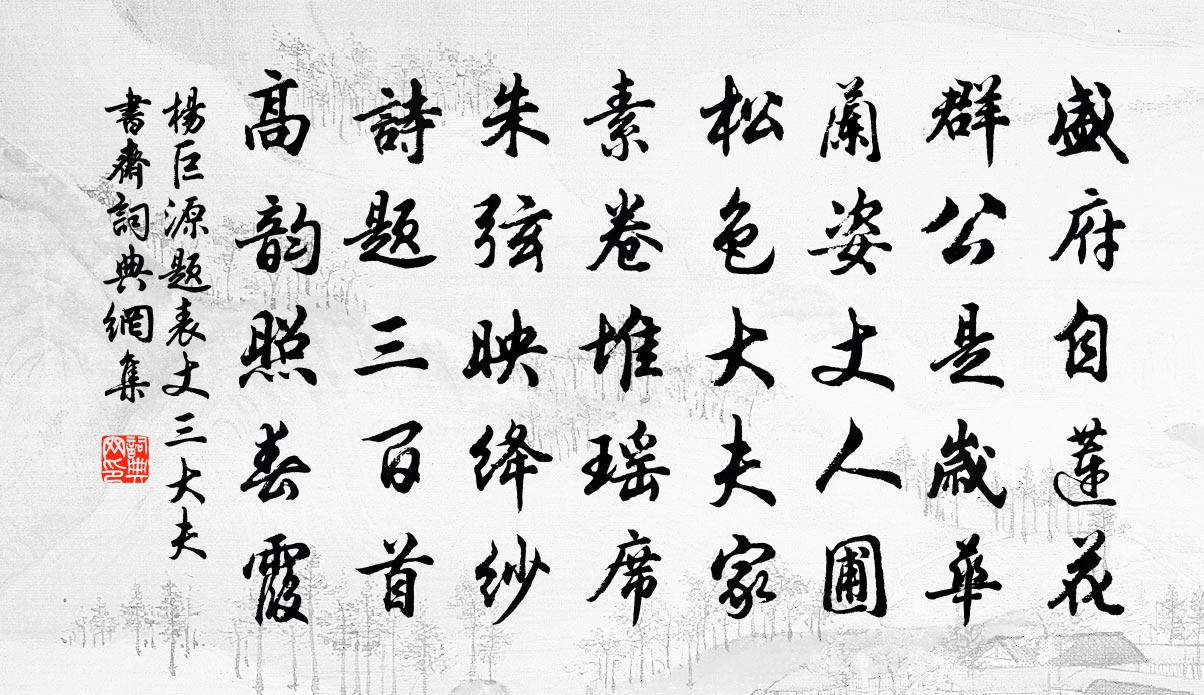 盛府自莲花
群公是歲華
蘭姿丈人圃
松色大夫家
素卷堆瑶席
朱弦映绛紗
詩题三百首
高韵照春霞
楊巨源题表丈三大夫
書齋詞典網集
詞典网印